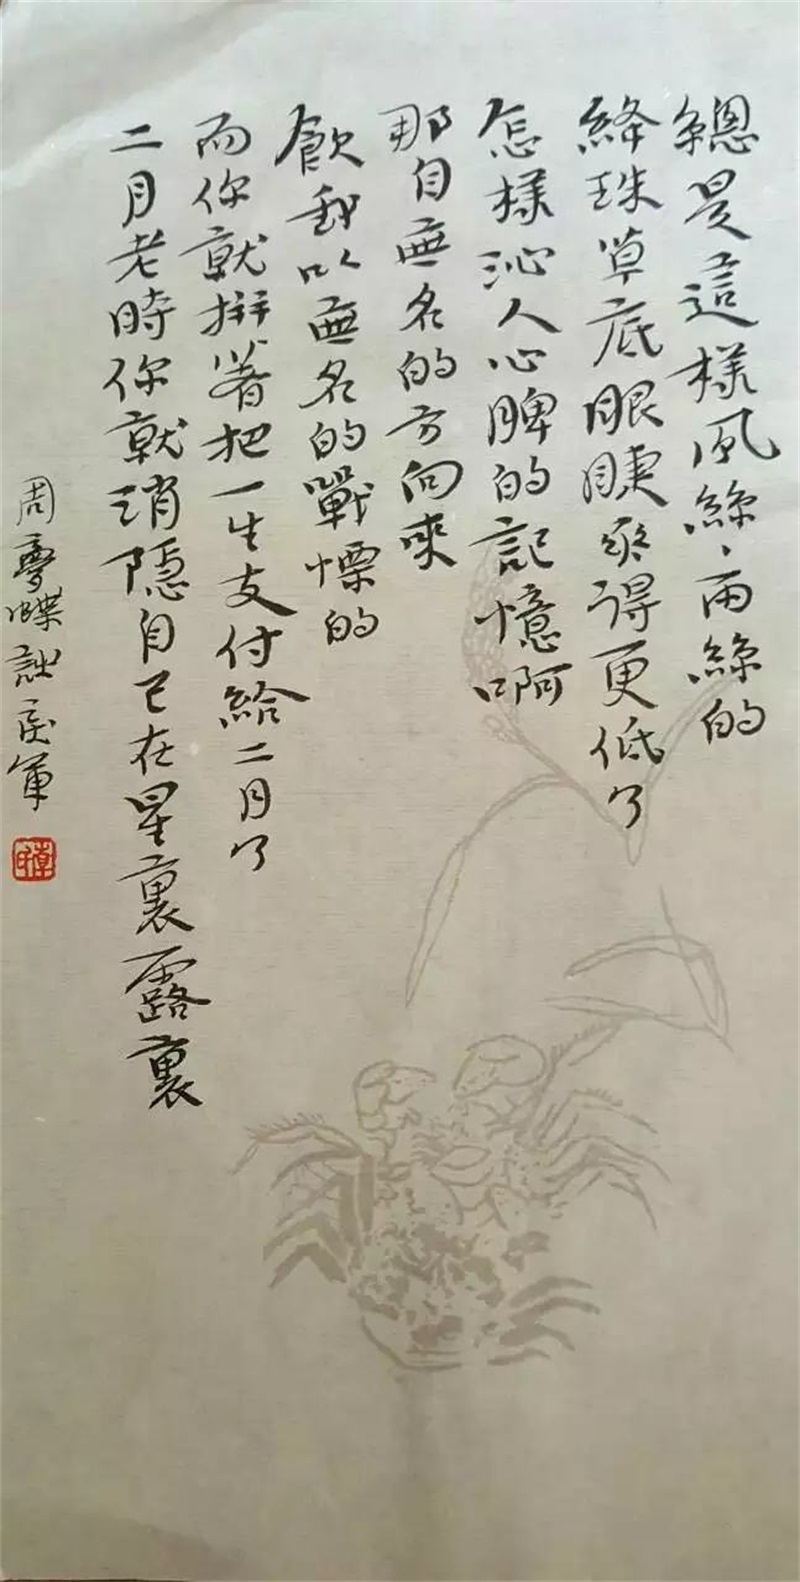 總是這樣風絲絲雨絲的
絳珠草底眼睫垂得更低了
怎樣沁人心脾的記憶啊
那自無名的方向來
飲我以無名的戰慄的
而你就拼著把一生支付給二月了
二月老時你就消隱自己在星裏露裏
周夢蝶詩